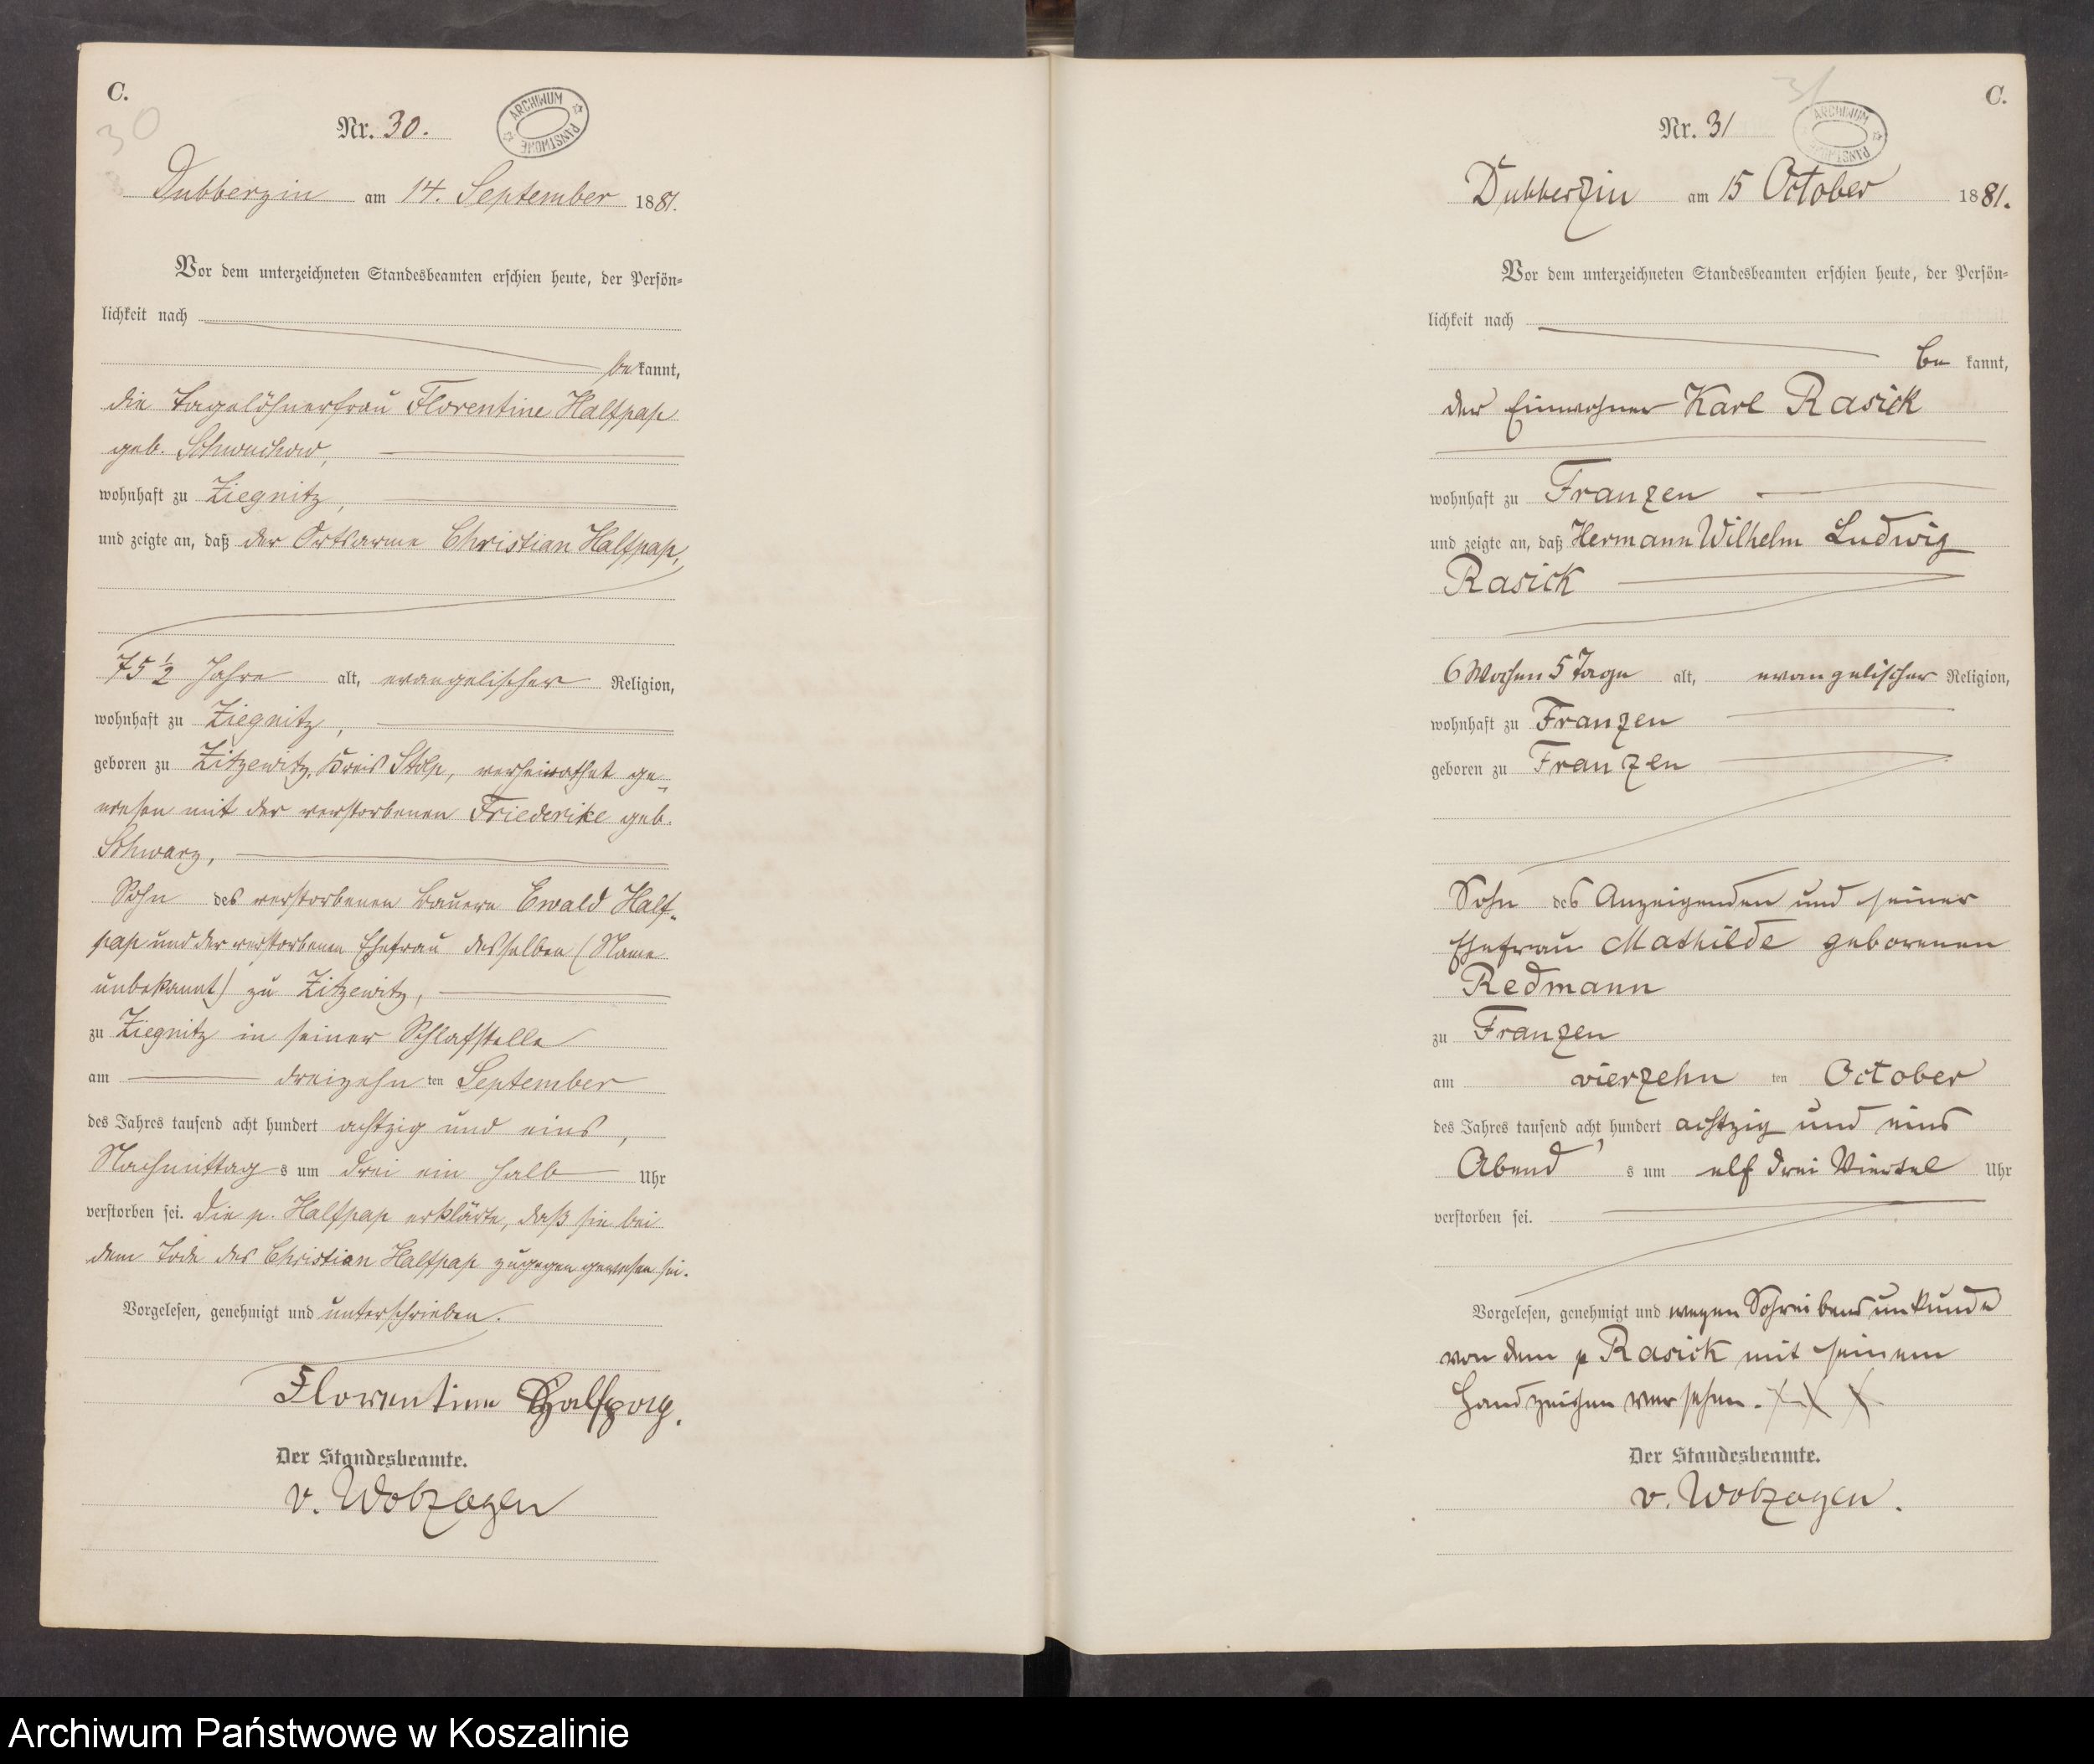 C.
30
Nr. 30.
ARCHIWUM PAŃSTWOWE
Dubberzin am 14. September 1881.
Vor dem unterzeichneten Standesbeamten erschien heute, der Persön-
lichkeit nach
bekannt,
die Tagelöhnerfrau Florentine Halfpap
geb. Schwuchow,
wohnhaft zu Ziegnitz,
und zeigte an, daß der Ortsarme Christian Halfpap,
75 1/2 Jahre alt, evangelischer Religion,
wohnhaft zu Ziegnitz,
geboren zu Zitzewitz, Kreis Stolp, verheirathet ge-
wesen mit der verstorbenen Friederike geb.
Schwarz,
Sohn des verstorbenen Bauern Ewald Half-
pap und der verstorbenen Ehefrau desselben (Name
unbekannt) zu Zitzewitz,
zu Ziegnitz in seiner Schlafstelle
am dreizehn ten September
des Jahres tausend acht hundert achtzig und eins,
Nachmittags um drei ein halb Uhr
verstorben sei. Die p. Halfpap erklärte, daß sie bei
dem Tode des Christian Halfpap zugegen gewesen sei.
Vorgelesen, genehmigt und unterschrieben.
Florentine Halfpap.
Der Standesbeamte.
v. Wolzogen
C.
31
Nr. 31
ARCHIWUM PAŃSTWOWE
Dubberzin am 15 October 1881.
Vor dem unterzeichneten Standesbeamten erschien heute, der Persön-
lichkeit nach
be kannt,
der Einwohner Karl Rasick
wohnhaft zu Franzen
und zeigte an, daß Hermann Wilhelm Ludwig
Rasick
6 Wochen 5 Tage alt, evangelischer Religion,
wohnhaft zu Franzen
geboren zu Franzen
Sohn des Anzeigenden und seiner
Ehefrau Mathilde geborenen
Redmann
zu Franzen
am vierzehn ten October
des Jahres tausend acht hundert achtzig und eins
Abend s um elf drei Viertel Uhr
verstorben sei.
Vorgelesen, genehmigt und wegen Schreibensunkunde
von dem p Rasick mit seinem
Handzeichen versehen. XXX
Der Standesbeamte.
v. Wolzogen.
Archiwum Państwowe w Koszalinie